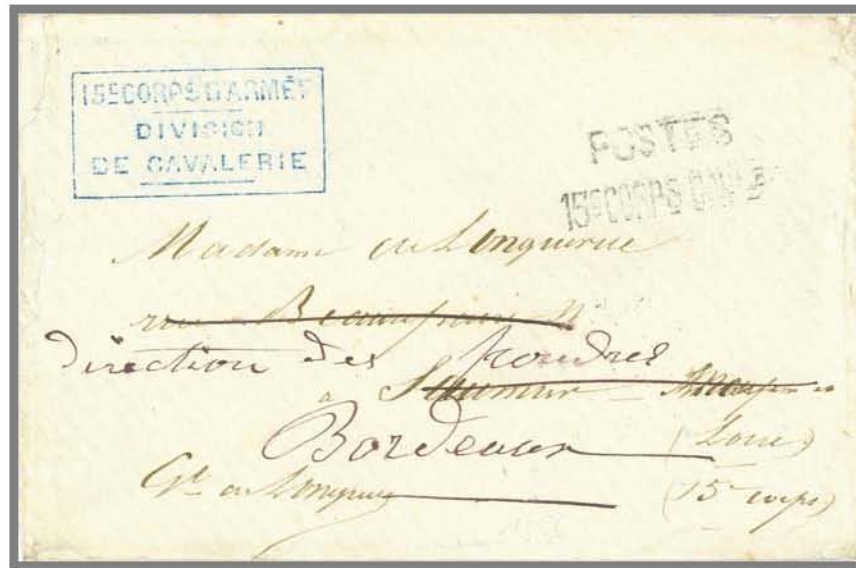 15E CORPS D'ARMÉE
DIVISION
DE CAVALERIE
POSTES
15E CORPS
Madame de Longuerue
rue Beaurepaire N°
direction des poudres
à Saumur
Bordeaux
Loire)
Gal de Longuerue
(15e corps)